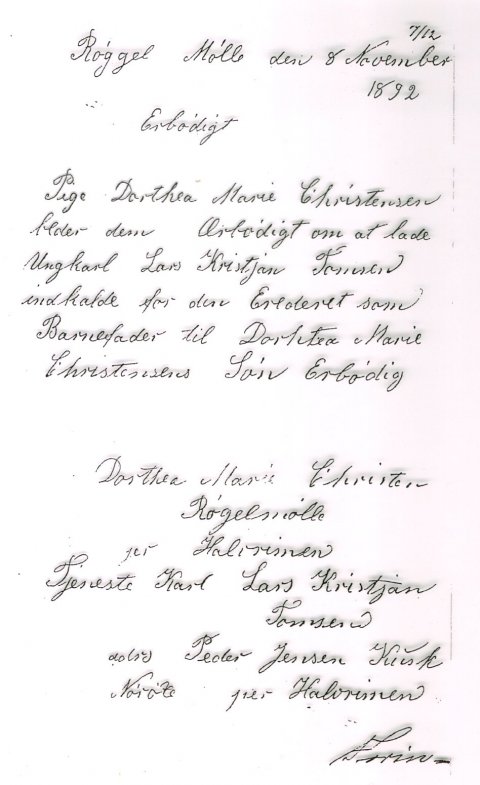 7/12
Røggel Mølle den 8 November
1892
Erbødigt
Pige Dorthea Marie Christensen
beder dem Ærbødigt om at lade
Ungkarl Lars Kristjan Tomsen
indkalde for den Erederet som
Barnefader til Dorhtea Marie
Christensens Søn Erbødig
Dorthea Marie Christen
Røgelmølle
per Halvrimen
Tjeneste Karl Lars Kristjan
Tomsen
adrs Peder Jensen Kusk
per Halvrimen